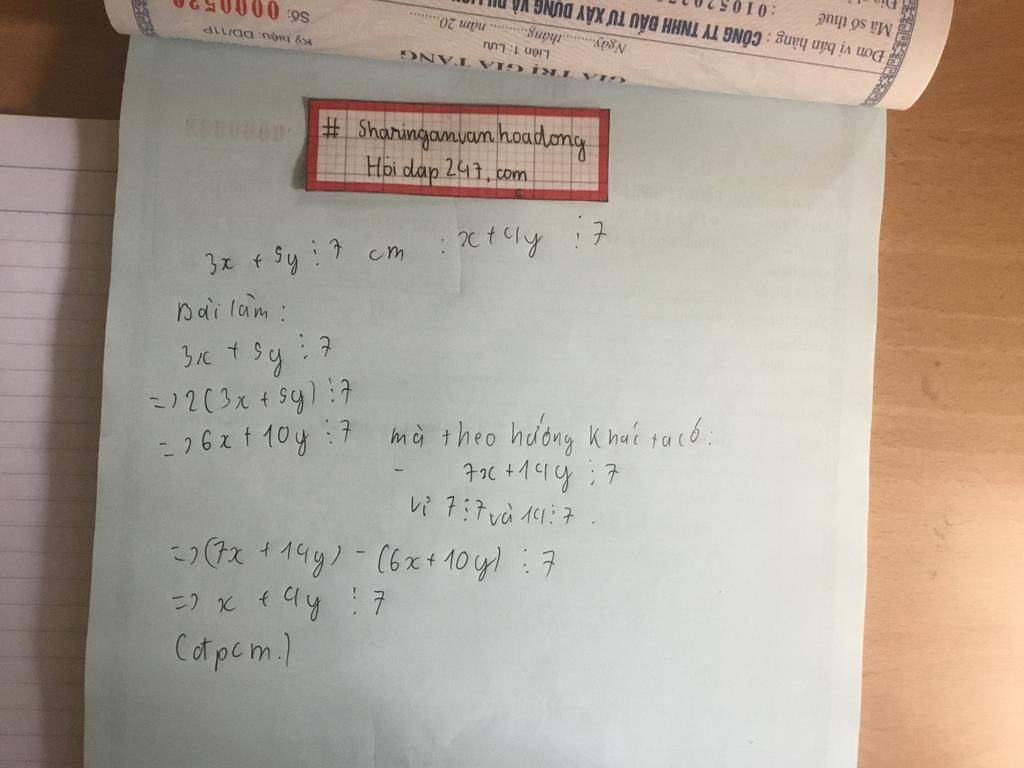 Số: 0000520
Ký hiệu: DD/11P
GIÁ TRỊ GIA TĂNG
Liên 1: Lưu
Ngày.......... tháng.......... năm 20..........
Đơn vị bán hàng : CÔNG TY TNHH ĐẦU TƯ XÂY DỰNG VÀ
Mã số thuế
# Sharinganvanhoadong
Hỏi dap 247.com
3x + 5y ⋮ 7 cm : x + 4y ⋮ 7
Bài làm :
3x + 5y ⋮ 7
=> 2(3x + 5y) ⋮ 7
=> 6x + 10y ⋮ 7 mà theo hướng khác ta có :
7x + 14y ⋮ 7
vì 7 ⋮ 7 và 14 ⋮ 7 .
=> (7x + 14y) - (6x + 10y) ⋮ 7
=> x + 4y ⋮ 7
(đpcm.)